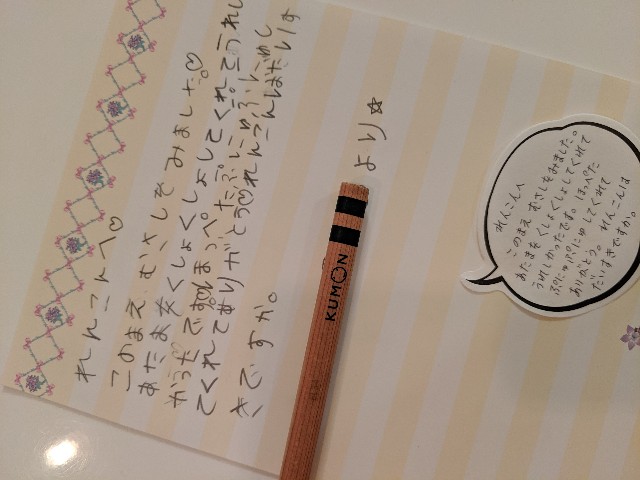 れんこんへ♡
このまえ むさしを みました♡
あたまを くしょくしょしてくれてうれし
かったです。ほっぺ たぷにゅぷにゅし
てくれてありがとう♡れんこんはだいす
きですか。
より☆
KUMON
れんこんへ
このまえ むさしをみました。
あたまを くしょくしょしてくれて
うれしかったです。 ほっぺた
ぷにゅぷにゅ してくれて
ありがとう。 れんこんは
だいすきですか。